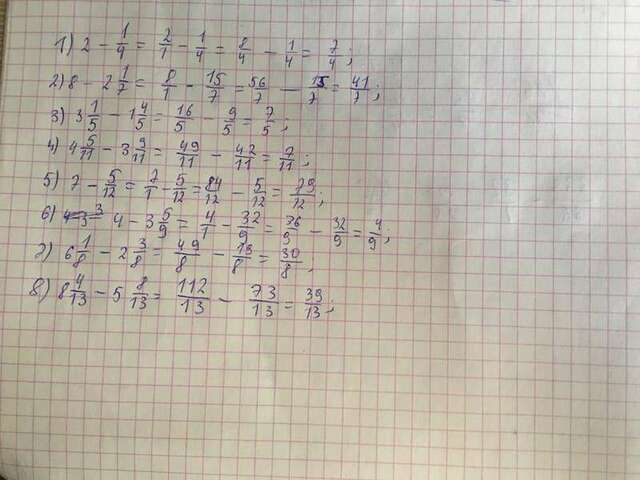 1) 2 - 1/4 = 2/1 - 1/4 = 8/4 - 1/4 = 7/4;
2) 8 - 2 1/7 = 8/1 - 15/7 = 56/7 - 15/7 = 41/7;
3) 3 1/5 - 1 4/5 = 16/5 - 9/5 = 7/5;
4) 4 5/11 - 3 9/11 = 49/11 - 42/11 = 7/11;
5) 7 - 5/12 = 7/1 - 5/12 = 84/12 - 5/12 = 79/12;
6) 4 - 3 5/9 = 4/1 - 32/9 = 36/9 - 32/9 = 4/9;
7) 6 1/8 - 2 3/8 = 49/8 - 19/8 = 30/8;
8) 8 4/13 - 5 8/13 = 112/13 - 73/13 = 39/13;